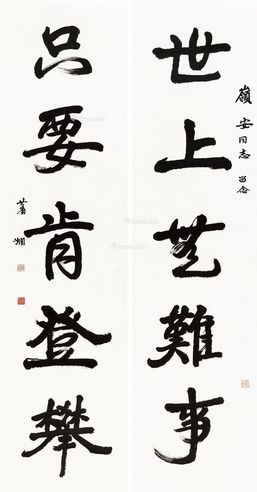 嶺安同志留念
世上无難事
只要肯登攀
萧娴